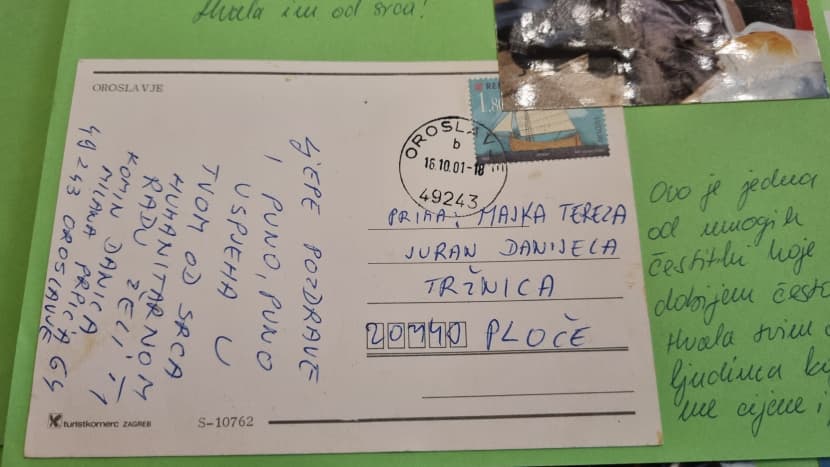 Hvala im od srca!
OROSLAVJE
LJEPE POZDRAVE
I PUNO, PUNO
USPJEHA U
TVOM OD SRCA
HUMANITARNOM
RADU ŽELI TI
KOMIN DANICA
MILANA PRPIĆA 64
49243 OROSLAVJE
1.80
OROSLAV
b
16.10.01-18
49243
PRIMA: MAJKA TEREZA
JURAN DANIJELA
TRŽNICA
20340 PLOČE
turistkomerc ZAGREB
S-10762
Ovo je jedna
od mnogih
čestitki koje
dobijem često
Hvala svim
ljudima
me cijene i